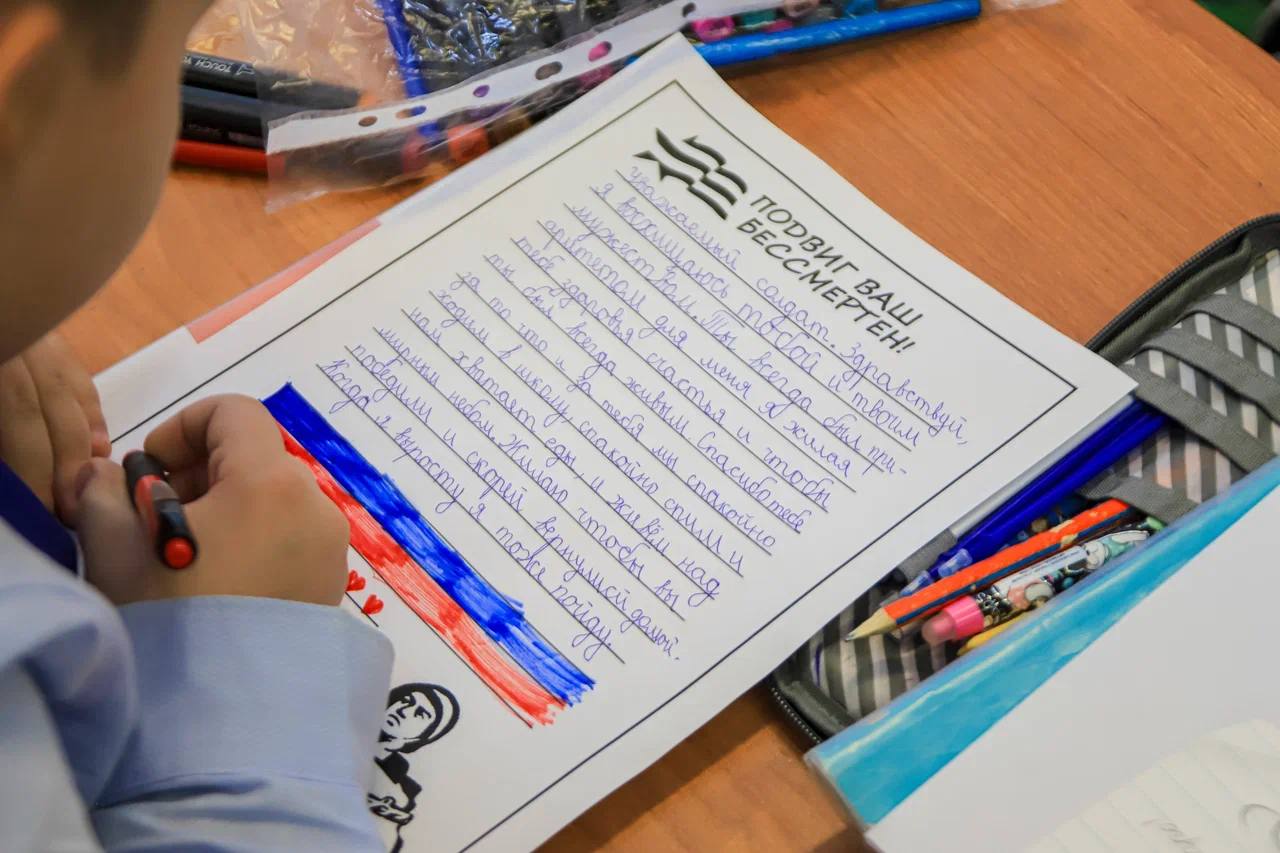 ПОДВИГ ВАШ
БЕССМЕРТЕН!
уважаемый солдат. Здравствуй,
я восхищаюсь тобой и твоим
мужеством. Ты всегда был при-
оритетом для меня я желая
тебе здоровья счастья и чтобы
ты был всегда живым. Спасибо тебе
за то что и за тебя мы спокойно
ходим в школу, спокойно спим и
нам хватает еды, и живём над
мирным небом. Желаю чтобы вы
победили и скорей вернулись домой.
Когда я выросту я тоже пойду.
TOUCH